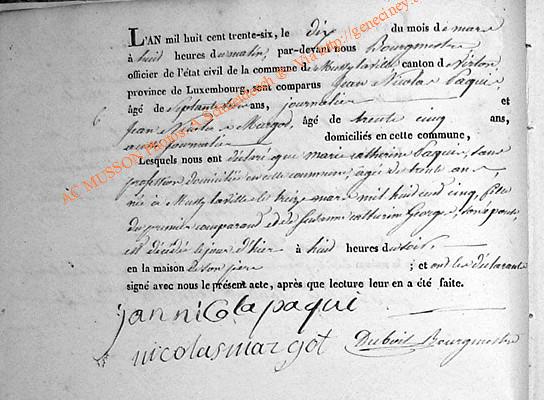 L'AN mil huit cent trente-six, le dix du mois de mars
à huit heures du matin, par-devant nous Bourgmestre
officier de l'état civil de la commune de Mussy la ville canton de Virton,
province de Luxembourg, sont comparus Jean Nicolas Paqui,
âgé de septante ans, journalier et
Jean Nicolas Margot, âgé de trente cinq ans,
aussi journalier domiciliés en cette commune,
Lesquels nous ont déclaré que marie catherine Paqui, sans
profession domiciliée en cette commune, agée de trente ans
née à Mussy la ville le treize mars mil huit cent cinq, fille
du premier comparant et de Susanne catherine George, son épouse
est décédée le jour d'hier à huit heures du soir,
en la maison de son père ; et ont les déclarants
signé avec nous le présent acte, après que lecture leur en a été faite.
jan nicola paqui
nicolas margot Dubois Bourgmestre
AC MUSSON Photos: A. ® Via http://geneciney.